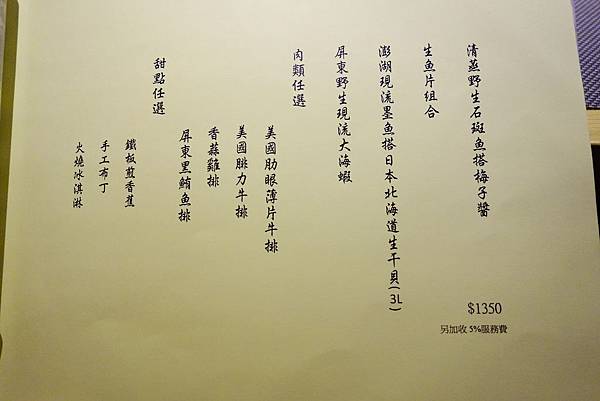 清蒸野生石斑魚搭梅子醬
生魚片組合
澎湖現流墨魚搭日本北海道生干貝(3L)
屏東野生現流大海蝦
肉類任選
美國肋眼薄片牛排
美國腓力牛排
香蒜雞排
屏東黑鮪魚排
甜點任選
鐵板煎香蕉
手工布丁
火燒冰淇淋
$1350
另加收5%服務費